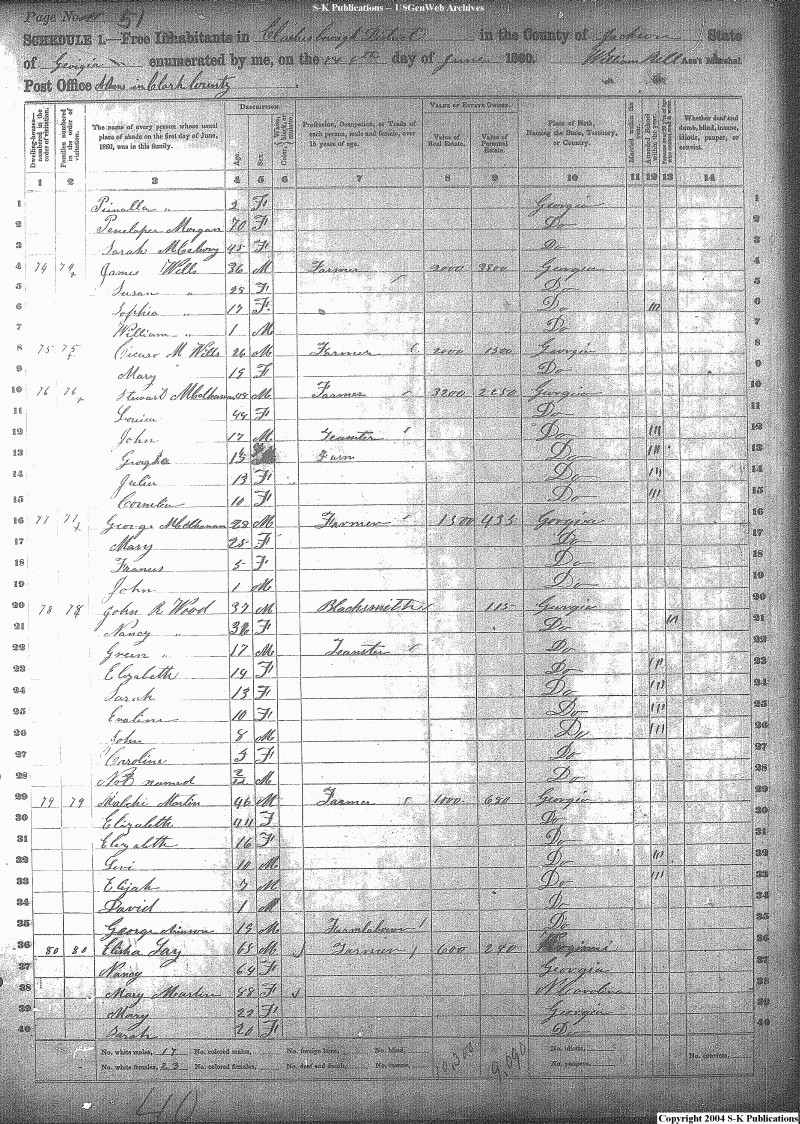 S-K Publications – USGenWeb Archives
Page No. 51
SCHEDULE 1.—Free Inhabitants in Clarkesborough District in the County of Jackson State
of Georgia enumerated by me, on the day of June 1860. William Bell Ass't Marshal
Post Office Athens in Clark County
DESCRIPTION. VALUE OF ESTATE OWNED.
Dwelling-houses—numbered in the order of visitation. Families numbered in the order of visitation. The name of every person whose usual place of abode on the first day of June, 1860, was in this family. Age. Sex. Color, Profession, Occupation, or Trade of each person, male and female, over 15 years of age. Value of Real Estate. Value of Personal Estate. Place of Birth, Naming the State, Territory, or Country. Married within the year. Attended School within the year. Whether deaf and dumb, blind, insane, idiotic, pauper, or convict.
1 2 3 4 5 6 7 8 9 10 11 12 13 14
1 " 2 F Georgia 1
2 Peneloper Morgan 70 F Do 2
3 Sarah 45 F Do 3
4 74 74 James Wills 36 M Farmer 2000 2800 Georgia 4
5 Susan " 28 F Do 5
6 Sophia " 17 F Do 6
7 William " 1 M Do 7
8 75 75 Cicero M Wills 26 M Farmer 2000 1500 Georgia 8
9 Mary 19 F Do 9
10 76 76 Stewart M Farmer 3200 2250 Georgia 10
11 Louisa 44 F Do 11
12 John 17 M Teamster Do 12
13 Farm Do 13
14 Julia 13 F Do 14
15 Cornelia 10 F Do 15
16 77 77 George 28 M Farmer 1500 435 Georgia 16
17 Mary 28 F Do 17
18 Frances 5 F Do 18
19 John 1 M Do 19
20 78 78 John R Wood 37 M Blacksmith 115 Georgia 20
21 Nancy " 36 F Do 21
22 Green " 17 M Teamster Do 22
23 Elizabeth 14 F Do 23
24 Sarah 13 F Do 24
25 Evaline 10 F Do 25
26 John 8 M Do 26
27 Caroline 3 F Do 27
28 Not named M Do 28
29 79 79 Malchi Martin 46 M Farmer 1000 690 Georgia 29
30 Elizabeth 44 F Do 30
31 Elizabeth 16 F Do 31
32 Levi 10 M Do 32
33 Elijah 7 M Do 33
34 David 1 M Do 34
35 George 19 M Farmlabour Do 35
36 80 80 Elisha Lay 65 M Farmer 600 36
37 Nancy 64 F Georgia 37
38 Mary Martin 88 F N Carolina 38
39 Mary 22 F Georgia 39
40 Sarah 20 F D 40
No. white males, 17 No. colored males, No. foreign born, No. blind, 10,300 9,090 No. idiotic, No. convicts,
No. white females, 23 No. colored females, No. deaf and dumb, No. insane, No. paupers,
40
Copyright 2004 S-K Publications